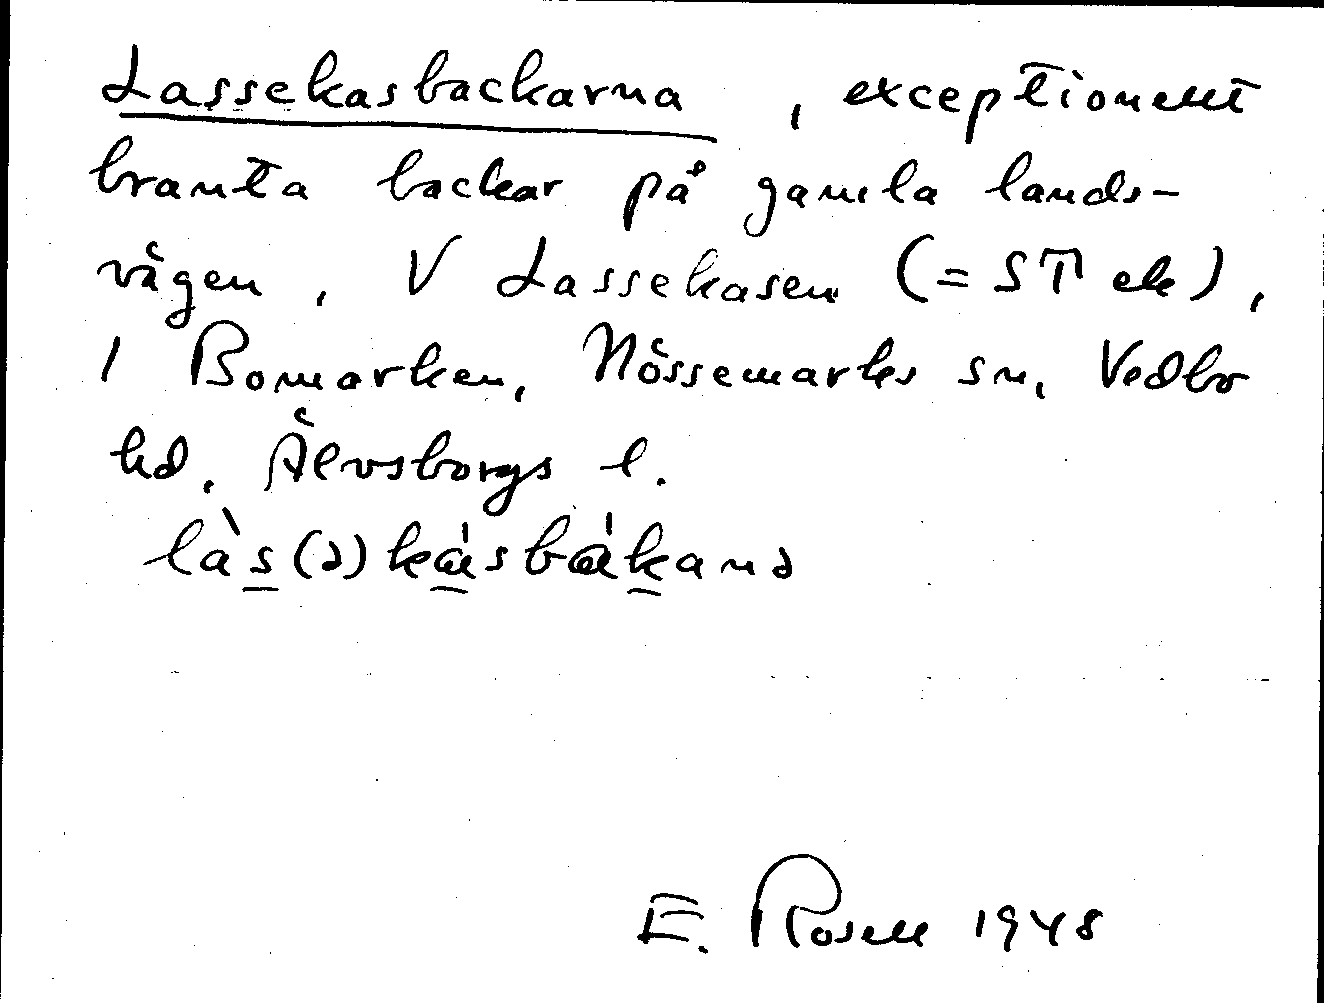 Lassekasbackarna, exceptionellt
branta backar på gamla lands-
vägen, V Lassekasen (= ST ek),
1 Bomarken, Nössemarks sn, Vedbo
hd, Älvsborgs l.
làs(ə)kàsbákanə
E. Rosell 1948